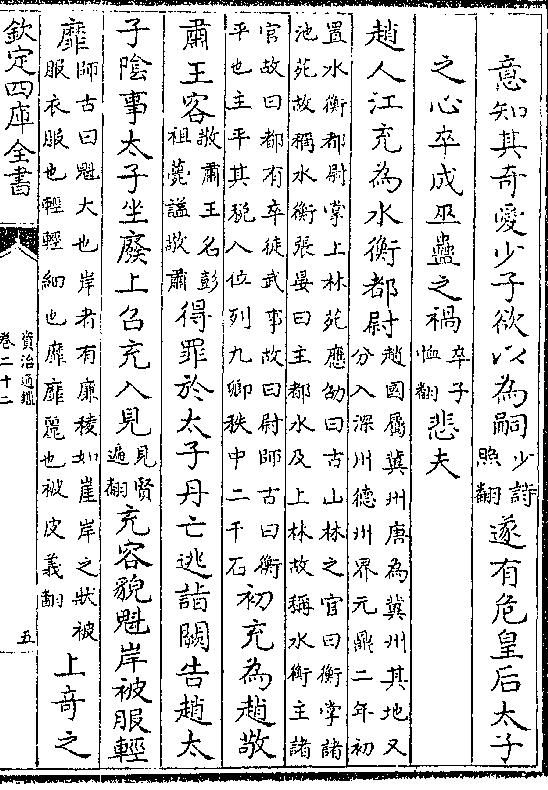 意知其奇愛少子欲以為嗣少詩照翻遂有危皇后太子
之心卒成巫蠱之禍卒子恤翻悲夫
趙人江充為水衡都尉趙國屬冀州唐為冀州其地又分入深州德州界元鼎二年初
置水衡都尉掌上林苑應劭曰古山林之官曰衡掌諸池苑故稱水衡張晏曰主都水及上林故稱水衡主諸
官故曰都有卒徒武事故曰尉師古曰衡平也主平其稅入位列九卿秩中二千石初充為趙敬
肅王客敬肅王名彭祖薨謚敬肅得罪於太子丹亡逃詣闕告趙太
子陰事太子坐廢上召充入見見賢遍翻充容貌魁岸被服輕
靡師古曰魁大也岸者有廉稜如崖岸之狀被服衣服也輕輕細也靡靡麗也被皮義翻上奇之
欽定四庫全書
資治通鑑
卷二十二
五